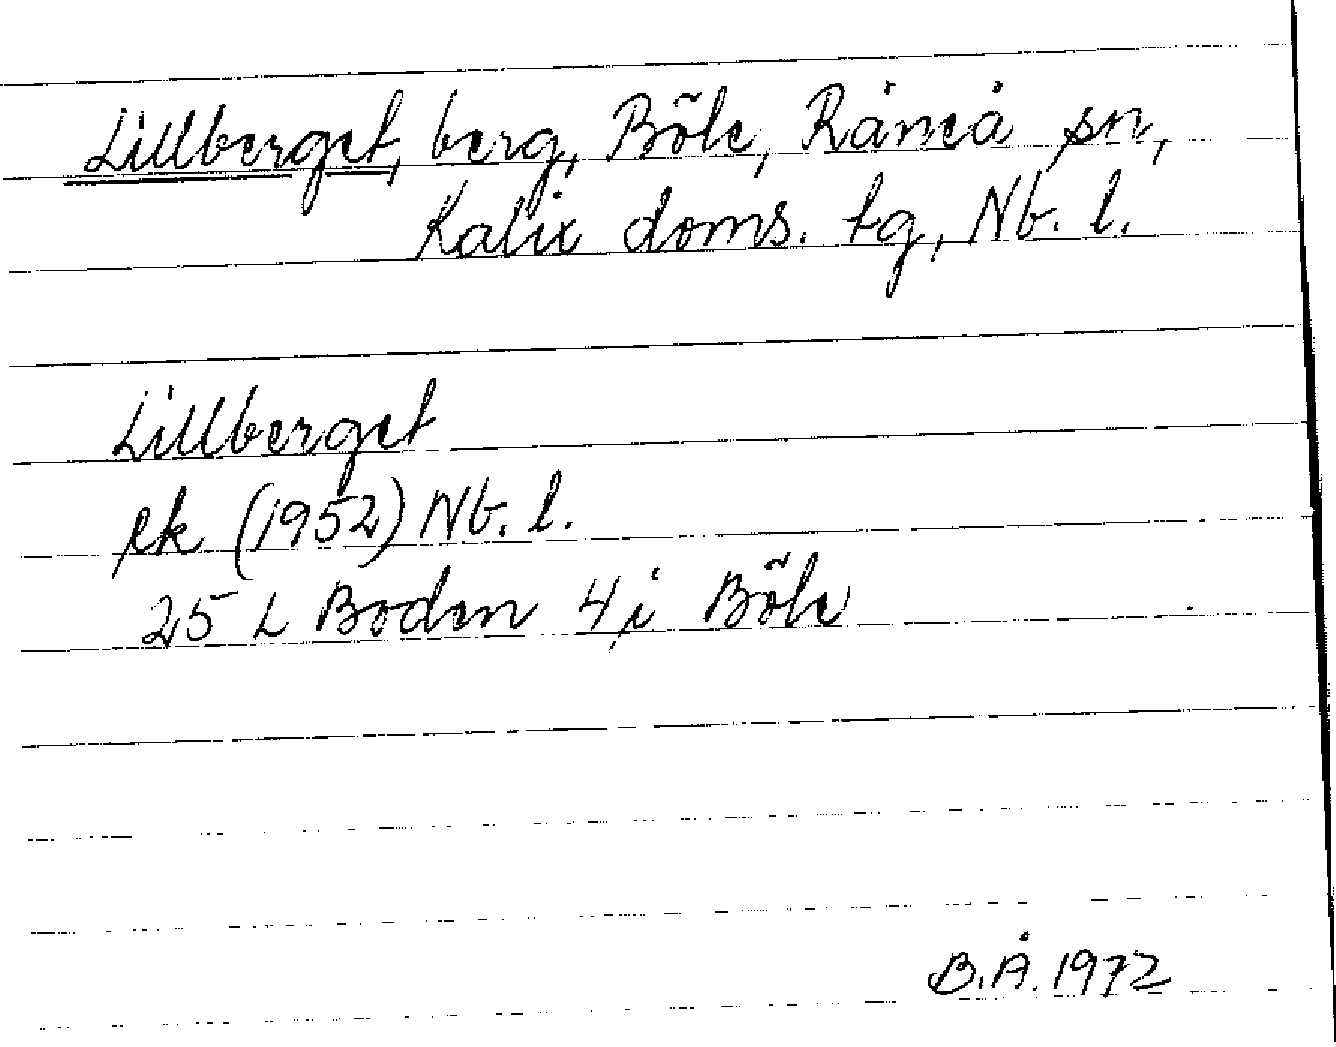 Lillberget, berg, Böle, Råneå sn,
Kalix doms. tg, Nb. l.
Lillberget
ek (1952) Nb. l.
25 L Boden 4 i Böle
B.Å. 1972